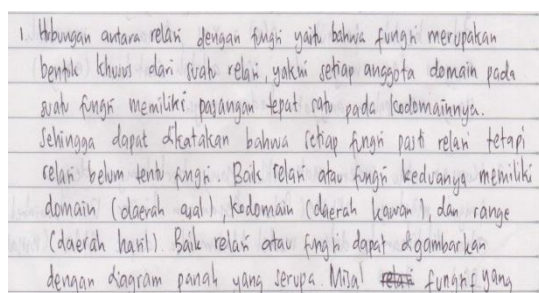 1. Hubungan antara relasi dengan fungsi yaitu bahwa fungsi merupakan
bentuk khusus dari suatu relasi, yakni setiap anggota domain pada
suatu fungsi memiliki pasangan tepat satu pada kodomainnya.
Sehingga dapat dikatakan bahwa setiap fungsi pasti relasi tetapi
relasi belum tentu fungsi. Baik relasi atau fungsi keduanya memiliki
domain (daerah asal), kodomain (daerah kawan), dan range
(daerah hasil). Baik relasi atau fungsi dapat digambarkan
dengan diagram panah yang serupa. Misal fungsi f yang